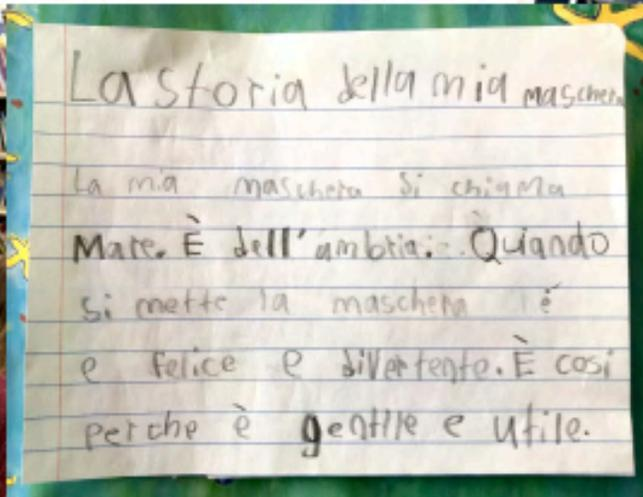 La storia della mia maschera
La mia maschera si chiama
Mare. È dell'ambria. Quiando
si mette la maschera è
e felice e divertente. È così
perche è gentile e utile.